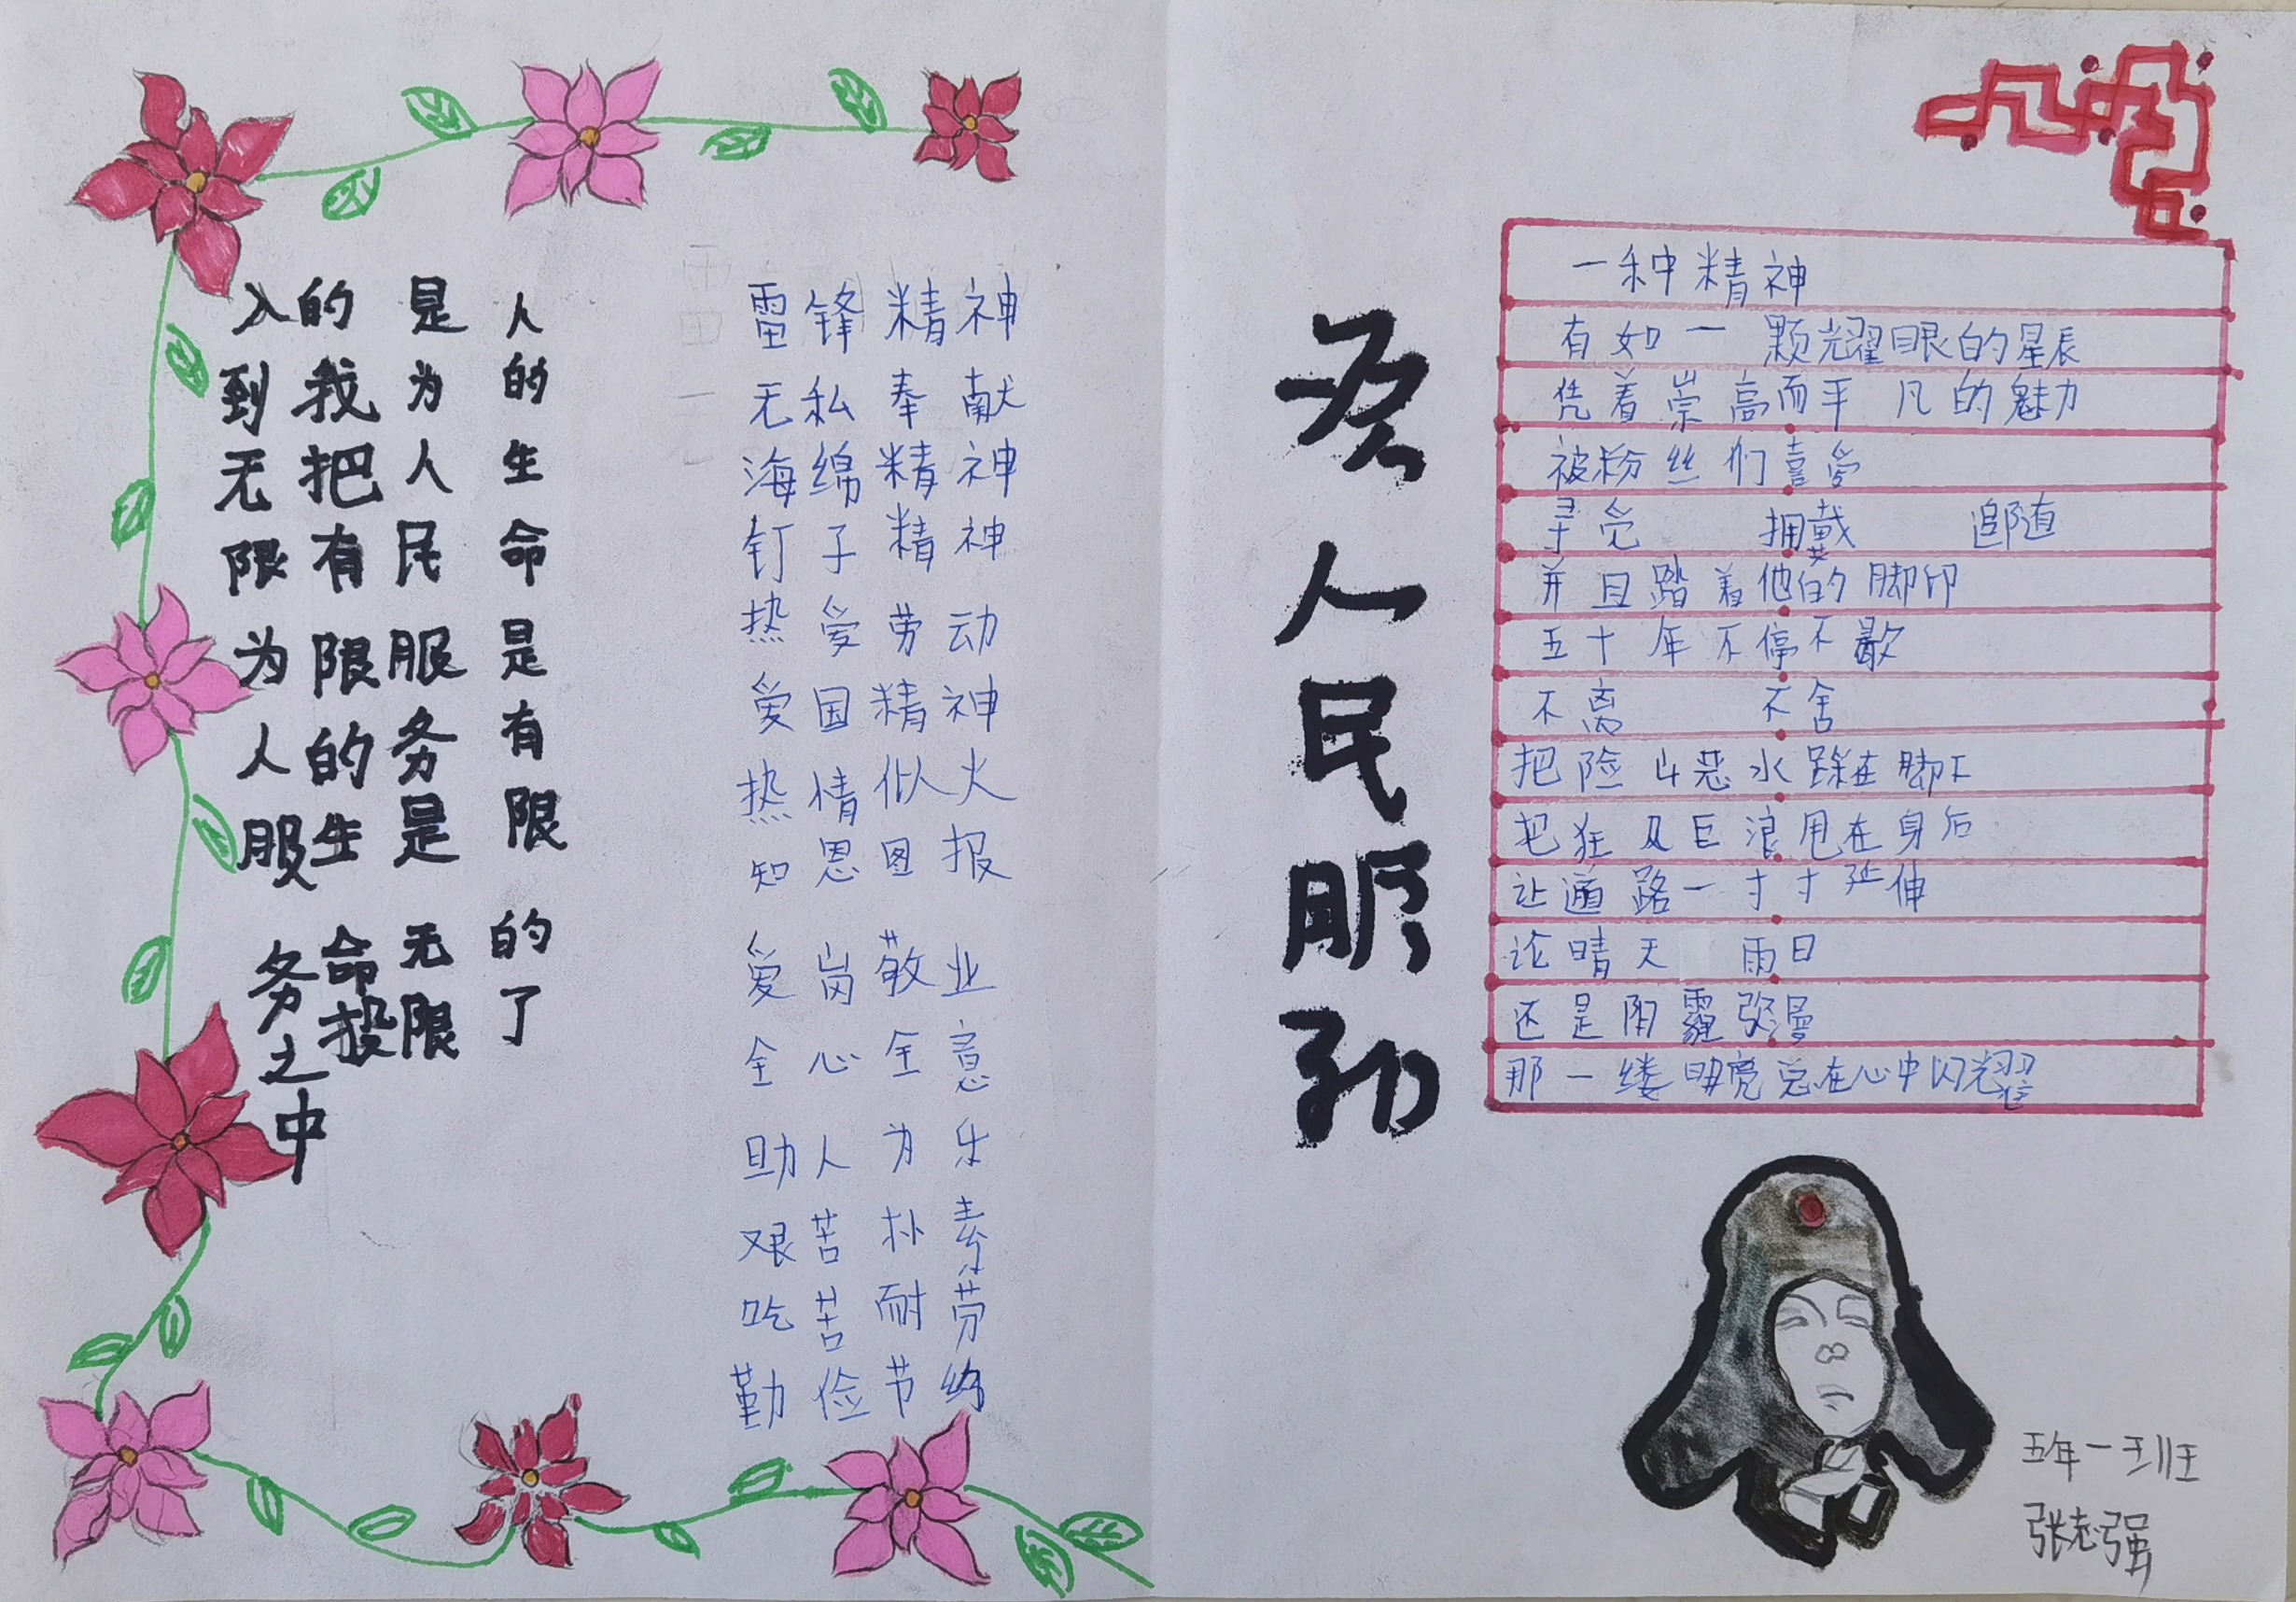 人的生命是有限的了
是为人民服务是无限
的我把有限的生命投
入到无限为人服务之中
雷锋精神
无私奉献
海绵精神
钉子精神
热爱劳动
爱国精神
热情似火
知恩图报
爱岗敬业
全心全意
助人为乐
艰苦朴素
吃苦耐劳
勤俭节约
为人民服务
一种精神
有如一颗耀眼的星辰
凭着崇高而平凡的魅力
被粉丝们喜爱
寻觅 拥戴 追随
并且踏着他的脚印
五十年不停不歇
不离 不舍
把险山恶水踩在脚下
把狂风巨浪甩在身后
让道路一寸寸延伸
论晴天 雨日
还是阴霾弥漫
那一缕明亮总在心中闪耀
五年一班
张志强